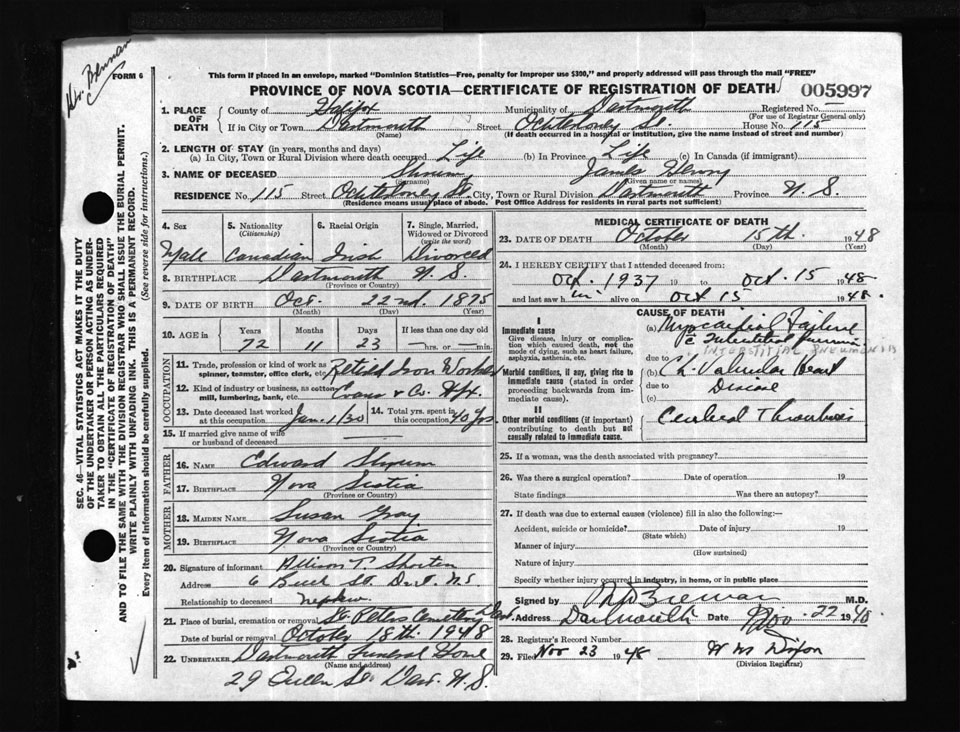 Dr. Brennan
FORM 6
This form if placed in an envelope, marked "Dominion Statistics—Free, penalty for improper use $300," and properly addressed will pass through the mail "FREE"
PROVINCE OF NOVA SCOTIA—CERTIFICATE OF REGISTRATION OF DEATH 005997
1. PLACE OF DEATH County of Halifax Municipality of Dartmouth Registered No.
(For use of Registrar General only)
If in City or Town Dartmouth Street Ochterloney St. House No. 115
(Name) (If death occurred in a hospital or institution, give the name instead of street and number)
2. LENGTH OF STAY (in years, months and days)
(a) In City, Town or Rural Division where death occurred Life (b) In Province Life (c) In Canada (if immigrant)
3. NAME OF DECEASED Shrum James Henry
(Surname) (Given name or names)
RESIDENCE No. 115 Street Ochterloney St. City, Town or Rural Division Dartmouth Province N. S.
(Residence means usual place of abode. Post Office Address for residents in rural parts not sufficient)
4. Sex 5. Nationality (Citizenship) 6. Racial Origin 7. Single, Married, Widowed or Divorced (write the word)
Male Canadian Irish Divorced
8. BIRTHPLACE Dartmouth N. S.
(Province or Country)
9. DATE OF BIRTH Oct. 22nd. 1875
(Month) (Day) (Year)
10. AGE in Years Months Days If less than one day old
72 11 23 hrs. or min.
OCCUPATION
11. Trade, profession or kind of work as spinner, teamster, office clerk, etc. Retired Iron Worker
12. Kind of industry or business, as cotton mill, lumbering, bank, etc. Evans & Co. Hfx.
13. Date deceased last worked at this occupation Jan. 1/30 14. Total yrs. spent in this occupation 40 yrs.
15. If married give name of wife or husband of deceased
FATHER
16. NAME Edward Shrum
17. BIRTHPLACE Nova Scotia
(Province or Country)
MOTHER
18. MAIDEN NAME Susan Gray
19. BIRTHPLACE Nova Scotia
(Province or Country)
20. Signature of informant Allison T. Shorten
Address 6 St. Dart. N.S.
Relationship to deceased nephew
21. Place of burial, cremation or removal St. Peters Cemetery Dart.
Date of burial or removal October 18th. 1948
22. UNDERTAKER Dartmouth Funeral Home
(Name and address)
29 Queen St. Dart. N. S.
MEDICAL CERTIFICATE OF DEATH
23. DATE OF DEATH October 15th. 1948
(Month) (Day) (Year)
24. I HEREBY CERTIFY that I attended deceased from:
Oct. 1937 19 to Oct. 15 1948
and last saw him alive on Oct 15 1948.
CAUSE OF DEATH
I
Immediate cause
Give disease, injury or complication which caused death, not the mode of dying, such as heart failure, asphyxia, asthenia, etc.
(a) Myocardial Failure
c̄ Interstitial Pneumonia
INTERSTITIAL PNEUMONIA
due to
Morbid conditions, if any, giving rise to immediate cause (stated in order proceeding backwards from immediate cause).
(b) Ch. Valvular Heart
due to Disease
(c)
II
Other morbid conditions (if important) contributing to death but not causally related to immediate cause.
Cerebral Thrombosis
25. If a woman, was the death associated with pregnancy?
26. Was there a surgical operation? Date of operation 19
State findings Was there an autopsy?
27. If death was due to external causes (violence) fill in also the following:—
Accident, suicide or homicide? Date of injury 19
(State which)
Manner of injury
(How sustained)
Nature of injury
Specify whether injury occurred in industry, in home, or in public place
Signed by Brennan M.D.
Address Dartmouth Date Nov 22 1948
28. Registrar's Record Number
29. Filed Nov 23 1948 W M Dixon
(Division Registrar)
SEC. 46—VITAL STATISTICS ACT MAKES IT THE DUTY
OF THE UNDERTAKER OR PERSON ACTING AS UNDER-
TAKER TO OBTAIN ALL THE PARTICULARS REQUIRED
IN THE "CERTIFICATE OF REGISTRATION OF DEATH"
AND TO FILE THE SAME WITH THE DIVISION REGISTRAR WHO SHALL ISSUE THE BURIAL PERMIT.
WRITE PLAINLY WITH UNFADING INK. THIS IS A PERMANENT RECORD.
Every item of information should be carefully supplied. (See reverse side for instructions.)